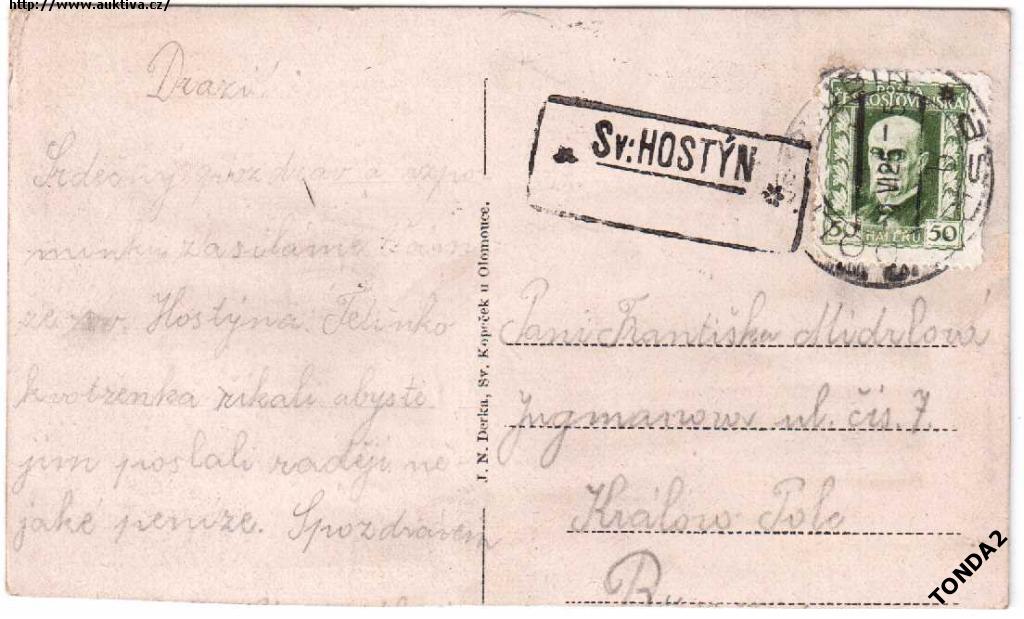 http://www.auktiva.cz/
Drazí!
Srdečný pozdrav a vzpo-
mínku zasíláme Vám
ze sv. Hostýna.
říkali abyste
jim poslali raději ně-
jaké peníze. S pozdravem
J. N. Derka, Sv. Kopeček u Olomouce.
Sv: HOSTÝN
POŠTA
ČESKOSLOVENSKÁ
VI 25
50 HALÉŘŮ 50
Paní Františka Midrlová
Jugmanova ul. čís. 7.
Královo Pole
TONDA2